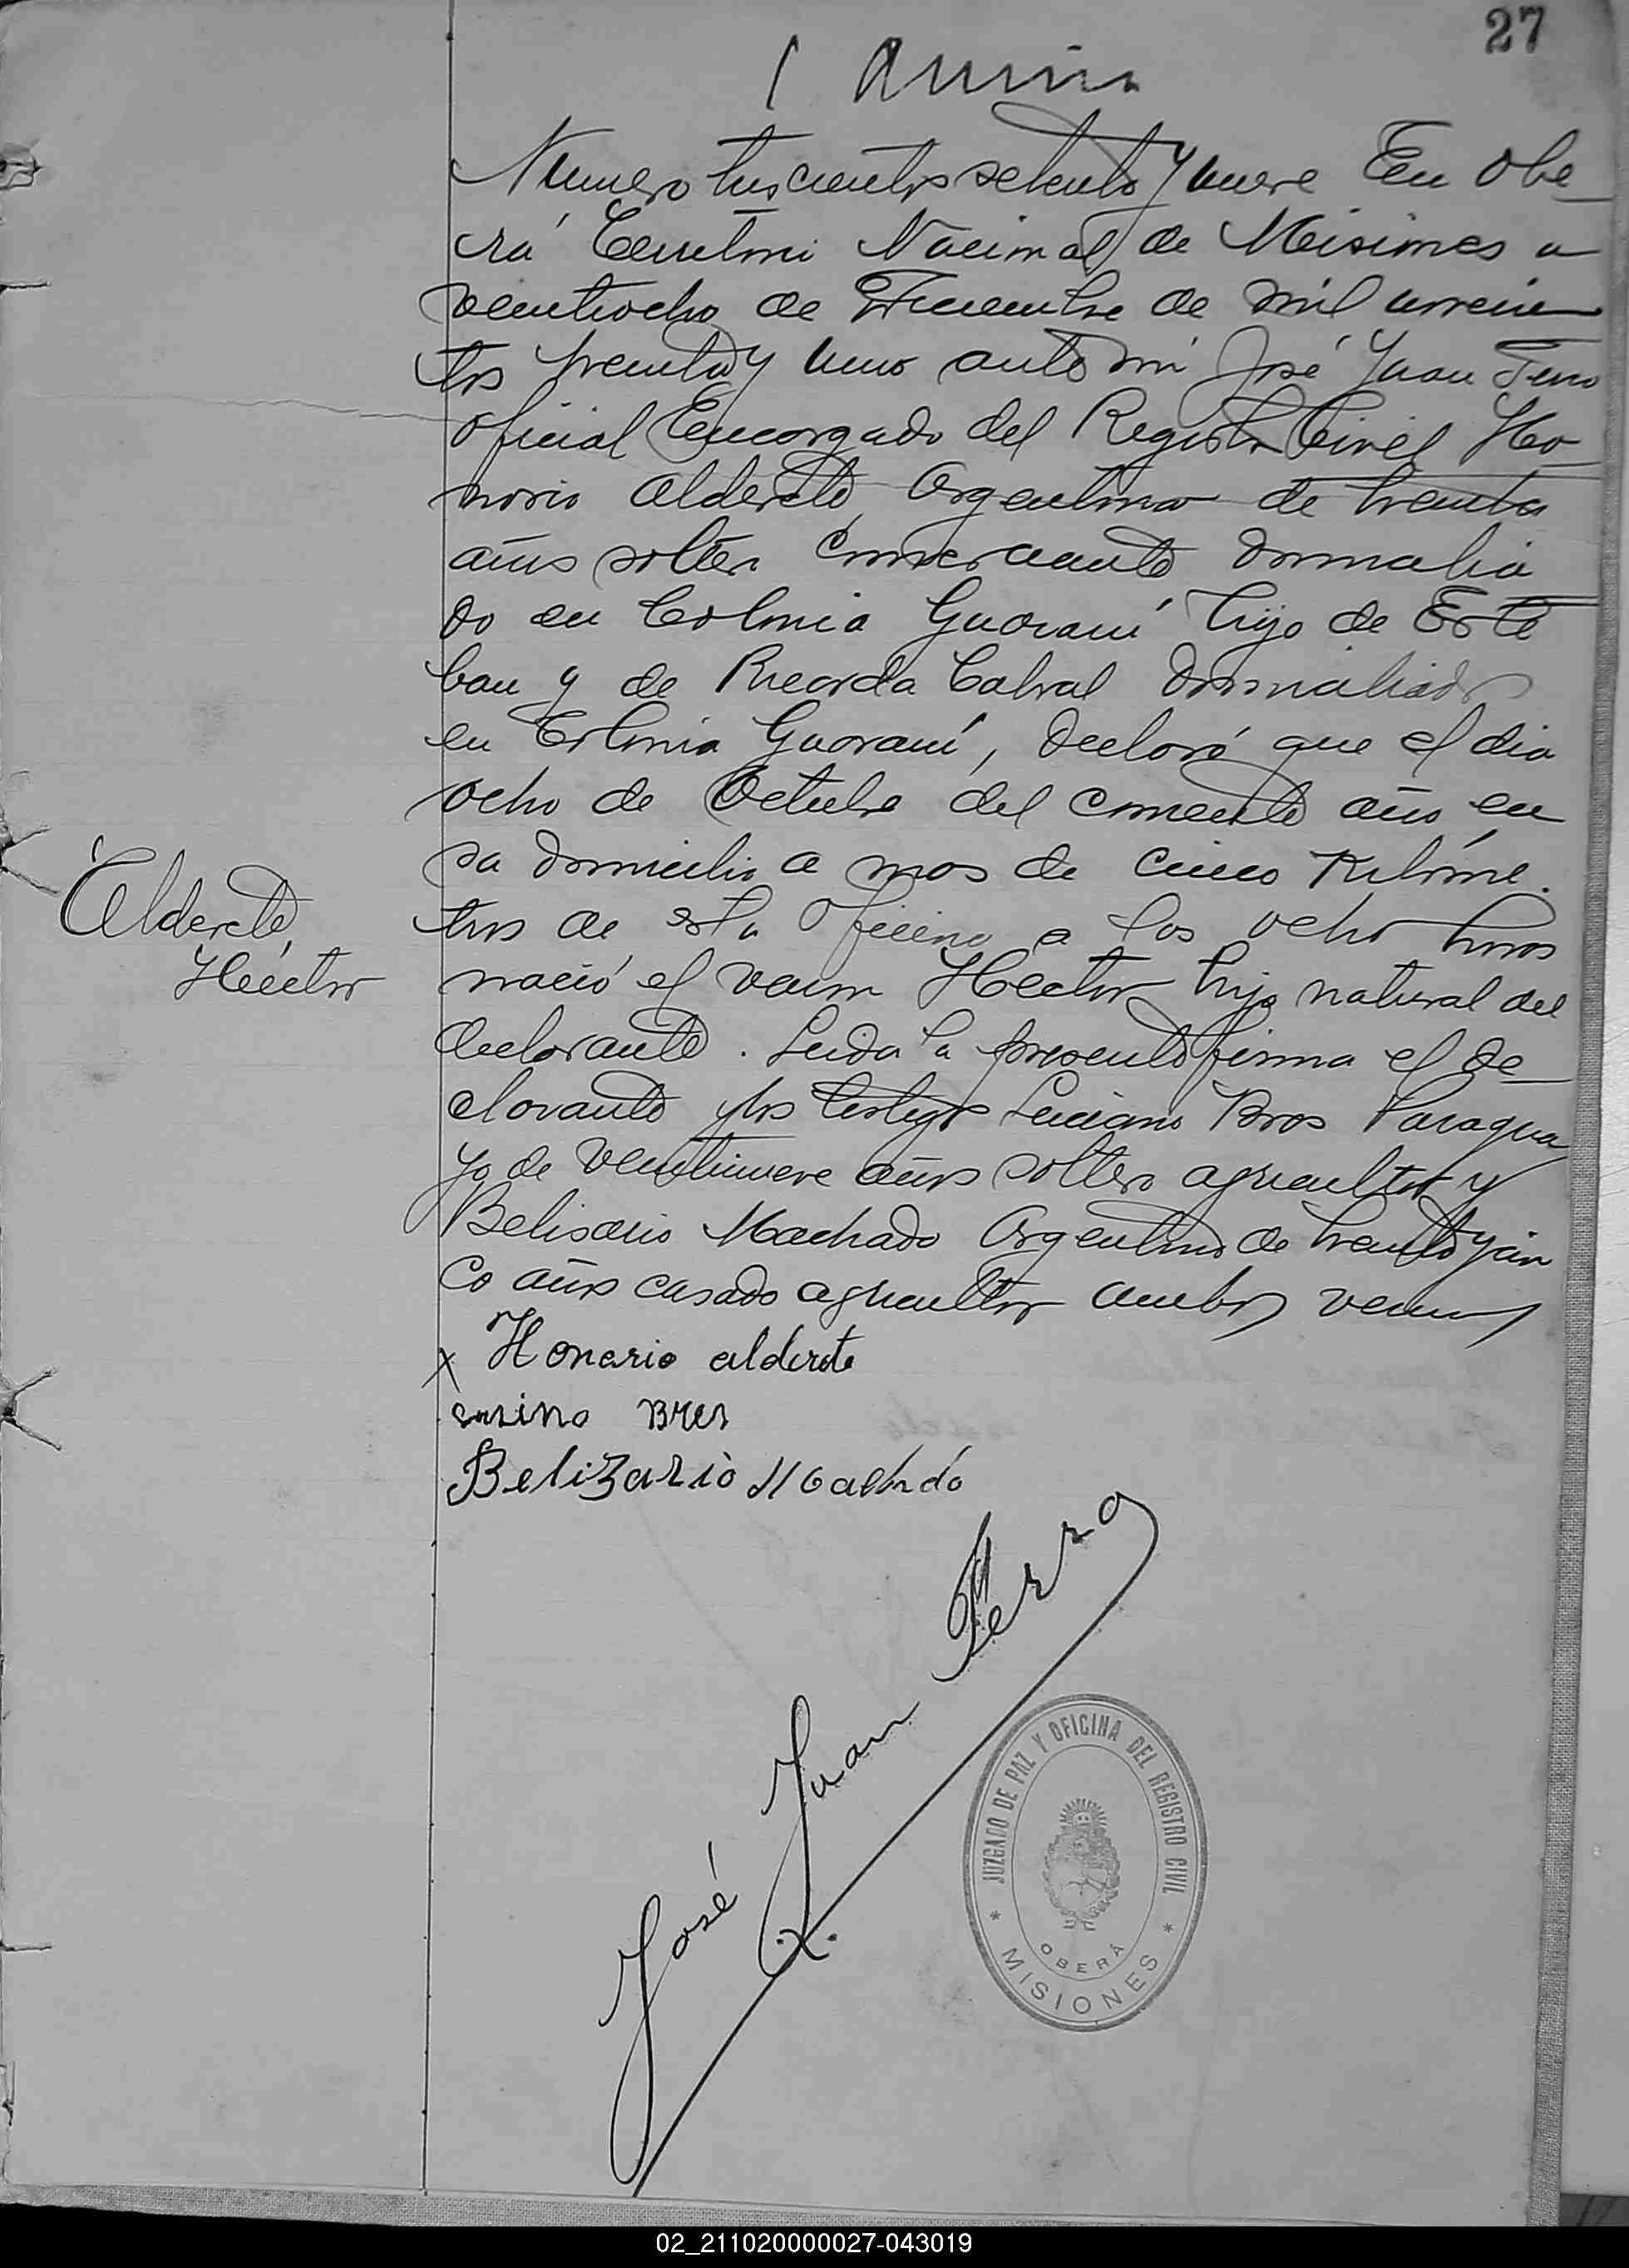 27
Numero trescientos setenta y nueve En Obe
rá Territorio Nacional de Misiones a
veintiocho de de mil novecien
tos treinta y uno ante mi José Juan Ferro
oficial Encargado del Registro Civil Ho
norio Alderete, Argentino de treinta
años soltero comerciante domicilia
do en Colonia Guaraní hijo de Este
ban y de Ricarda Cabral domiciliados
en Colonia Guaraní, declaró que el dia
ocho de Octubre del corriente año en
su domicilio a mas de cinco Kilóme
tros de esta Oficina a las ocho horas
nació el varon Héctor hijo natural del
declarante. Leida la presente firma el de
clarante y los testigos Luciano Bros Paragua
yo de veintinueve años soltero agricultor y
Belisario Machado Argentino de treinta y cin
co años casado agricultor ambos vecinos
Alderete,
Héctor
x Honorio alderete
Belizario Machado
José Juan Ferro
JUZGADO DE PAZ Y OFICINA DEL REGISTRO CIVIL
OBERÁ
* MISIONES *
02_211020000027-043019